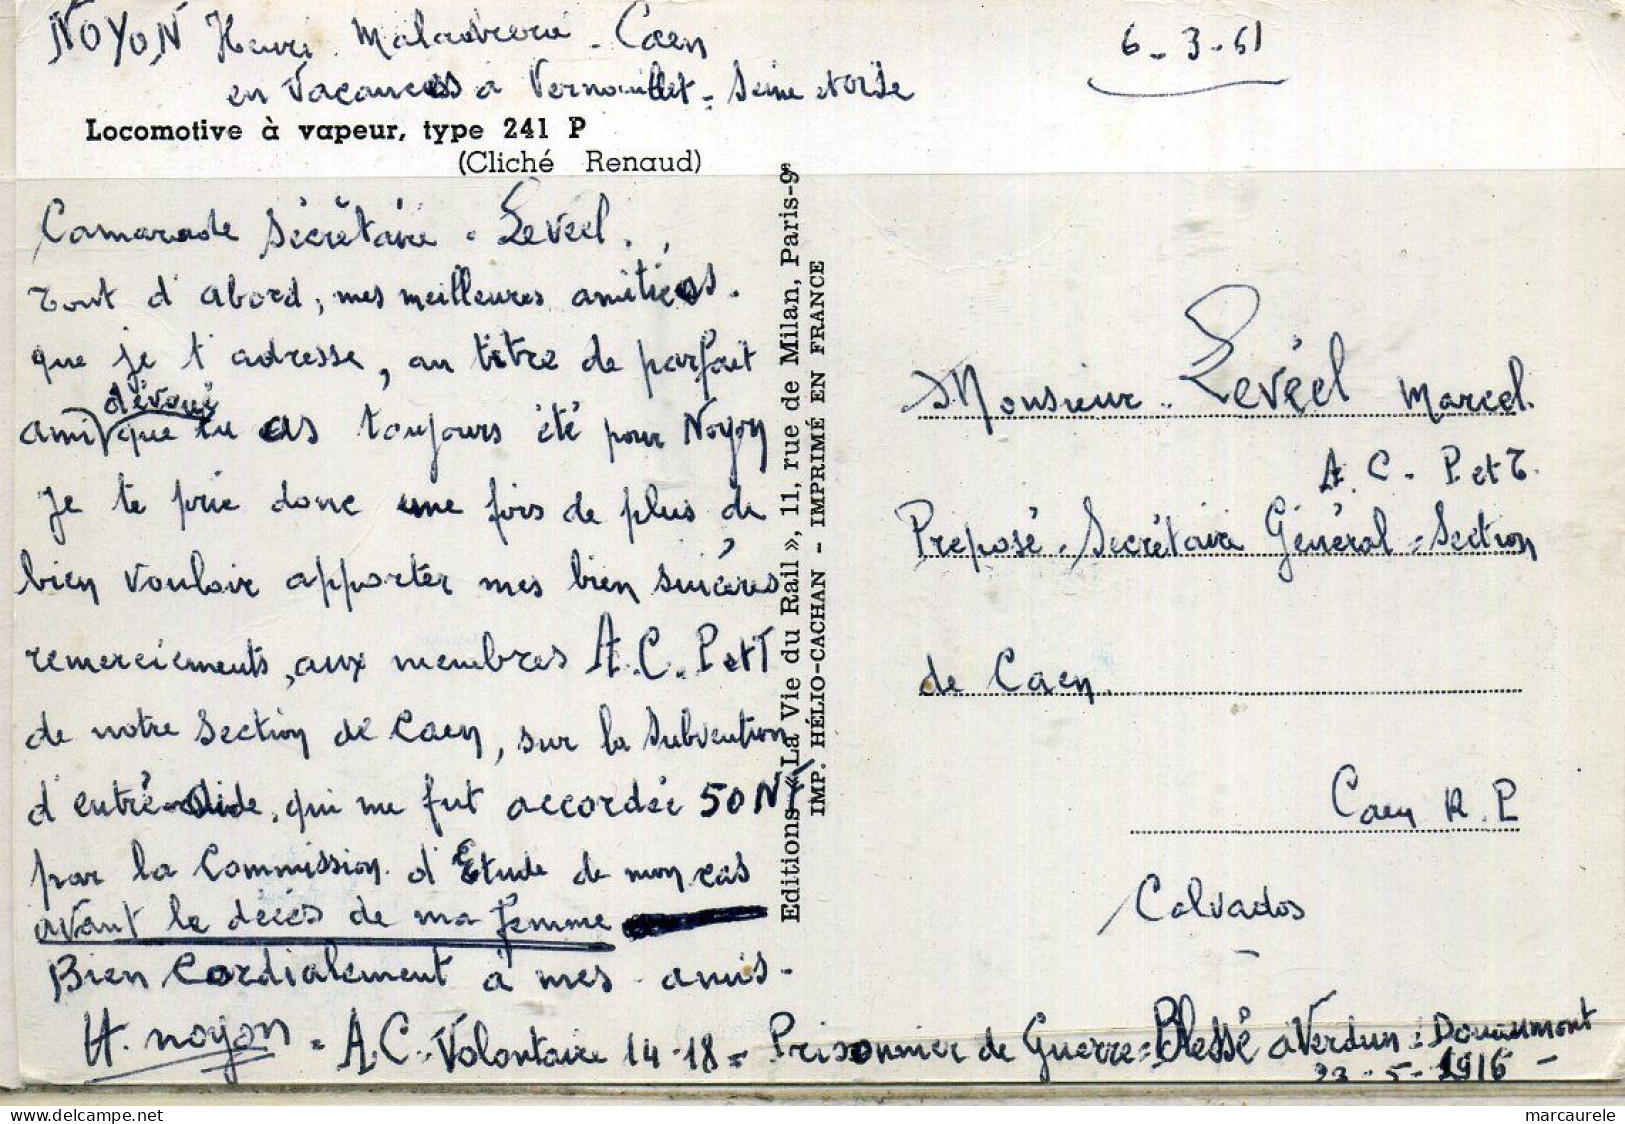 NOYON Henri. Maladrerie - Caen
en Vacances a Vernouillet - Seine et Oise
6 - 3 - 61
Locomotive à vapeur, type 241 P
(Cliché Renaud)
Camarade Sécrétaire - Levéel.
Tout d'abord, mes meilleures amitiés.
que je t'adresse, au titre de parfait
ami dévoué que tu as toujours été pour Noyon
Je te prie donc une fois de plus de
bien vouloir apporter mes bien sincères
remerciements, aux membres A.C. P et T
de notre Section de Caen, sur la Subvention
d'entre-aide, qui me fut accordée 50 NF
par la Commission d'Etude de mon cas
avant le décès de ma femme
Bien Cordialement à mes amis -
H. Noyon = A.C. Volontaire 14-18 = Prisonnier de Guerre = Blessé a Verdun : Douaumont
23 - 5 - 1916 -
Editions « La Vie du Rail », 11, rue de Milan, Paris-9e
IMP. HÉLIO-CACHAN - IMPRIMÉ EN FRANCE
Monsieur Levéel Marcel.
A. C. P et T.
Preposé - Secrétaire Général = Section
de Caen.
Caen R. P
Calvados
marcaurele